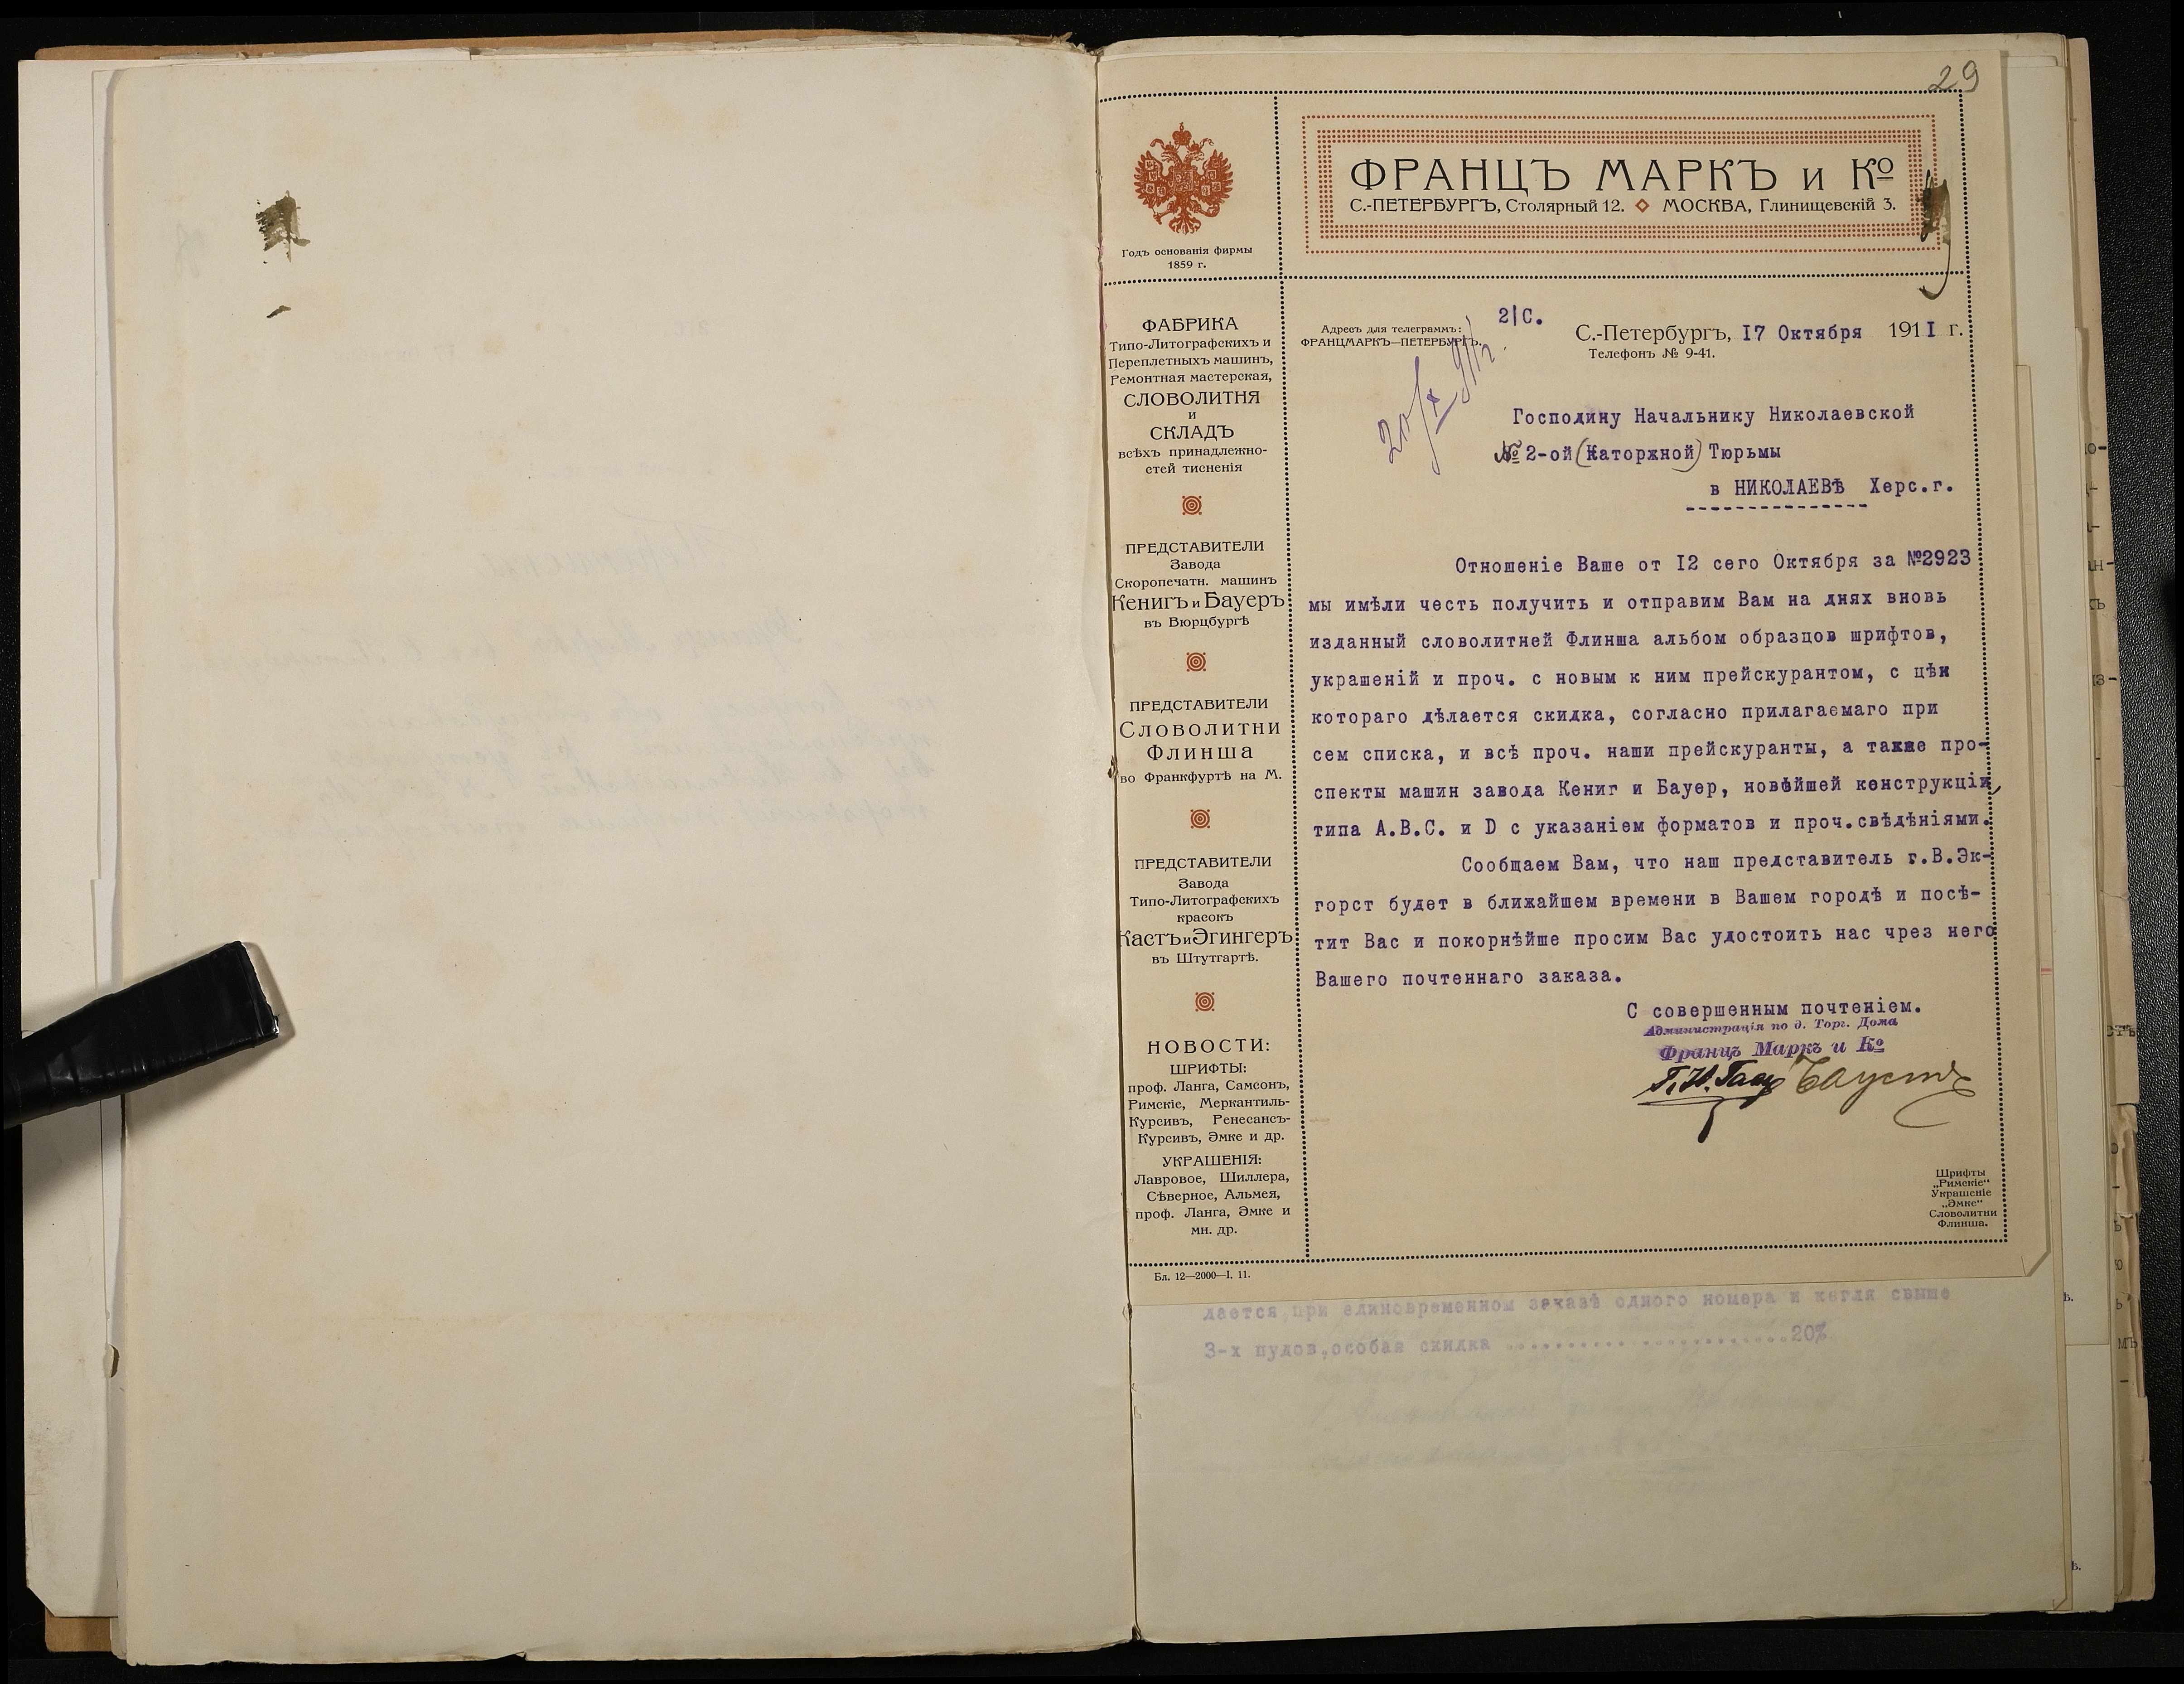 29
ФРАНЦЪ МАРКЪ и Кº
С.-ПЕТЕРБУРГЪ, Столярный 12. МОСКВА, Глинищевскій 3.
Годъ основанія фирмы
1859 г.
ФАБРИКА
Типо-Литографскихъ и
Переплетныхъ машинъ,
Ремонтная мастерская,
СЛОВОЛИТНЯ
и
СКЛАДЪ
всѣхъ принадлежно-
стей тисненія
ПРЕДСТАВИТЕЛИ
Завода
Скоропечатн. машинъ
Кенигъ и Бауеръ
въ Вюрцбургѣ
ПРЕДСТАВИТЕЛИ
Словолитни
Флинша
во Франкфуртѣ на М.
ПРЕДСТАВИТЕЛИ
Завода
Типо-Литографскихъ
красокъ
Кастъ и Эгингеръ
въ Штутгартѣ.
НОВОСТИ:
ШРИФТЫ:
проф. Ланга, Самсонъ,
Римскіе, Меркантиль-
Курсивъ, Ренесансъ-
Курсивъ, Эмке и др.
УКРАШЕНІЯ:
Лавровое, Шиллера,
Сѣверное, Альмея,
проф. Ланга, Эмке и
мн. др.
Бл. 12—2000—I. 11.
2|С.
Адресъ для телеграммъ:
ФРАНЦМАРКЪ—ПЕТЕРБУРГЪ.
С.-Петербургъ, I7 Октября 191I г.
Телефонъ № 9-41.
Господину Начальнику Николаевской
№ 2-ой (Каторжной) Тюрьмы
в НИКОЛАЕВѢ Херс.г.
Отношеніе Ваше от I2 сего Октября за №2923
мы имѣли честь получить и отправим Вам на днях вновь
изданный словолитней Флинша альбом образцов шрифтов,
украшеній и проч. с новым к ним прейскурантом, с цѣн
котораго дѣлается скидка, согласно прилагаемаго при
сем списка, и всѣ проч. наши прейскуранты, а также про-
спекты машин завода Кениг и Бауер, новѣйшей конструкціи,
типа А.В.С. и D с указаніем форматов и проч.свѣдѣніями.
Сообщаем Вам, что наш представитель г.В.Эк-
горст будет в ближайшем времени в Вашем городѣ и посѣ-
тит Вас и покорнѣйше просим Вас удостоить нас чрез него
Вашего почтеннаго заказа.
С совершенным почтеніем.
Администрація по д. Торг. Дома
Францъ Маркъ и Кº
Шрифты
„Римскіе“
Украшеніе
„Эмке“
Словолитни
Флинша.
лается,при единовременном заказѣ одного номера и кегля свыше
3-х пудов,особая скидка ........................20%